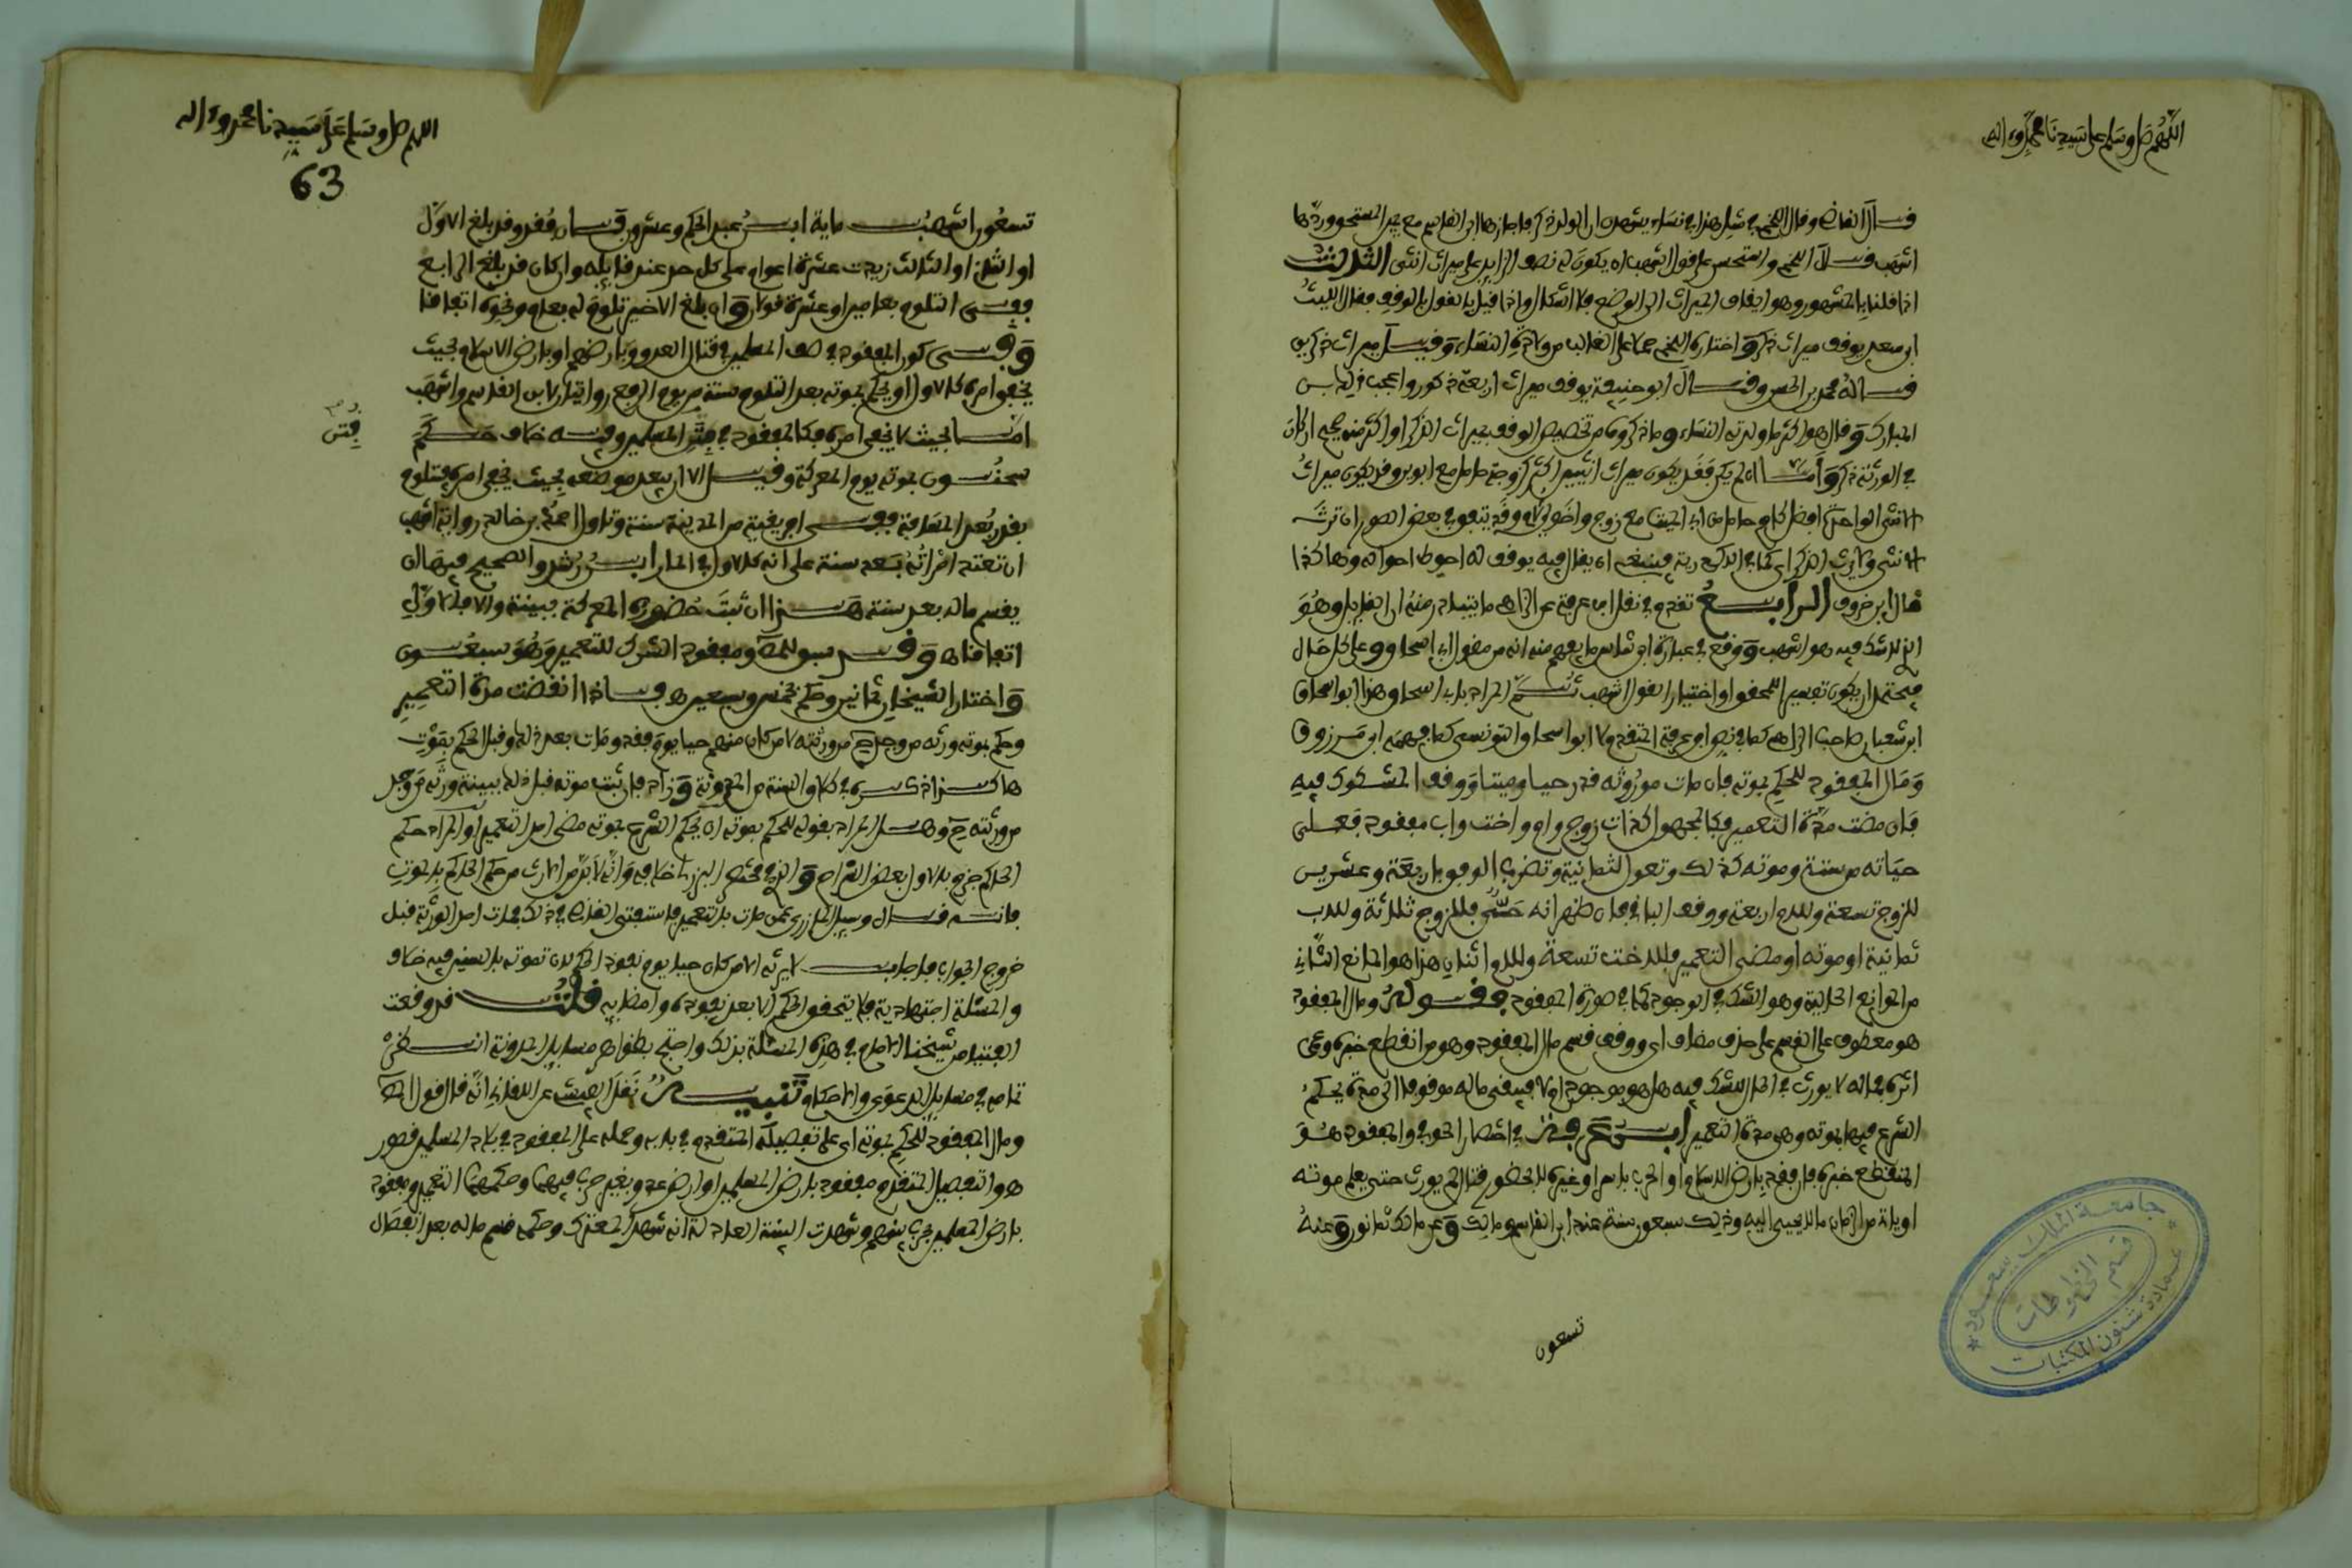 اللهم صل وسلم على سيدنا محمد وءاله
قال القاضي وقال اللخمي في مثل هذا في نساء يشهدن ان الولد ذكر فاجازها ابن القاسم مع يمين المستحق وردها
اشهب قال اللخمي واستحسن على قول اشهب ان يكون له نصف الزايد على ميراث انثى الثالث
اذا قلنا بالمشهور وهو ايقاف الميراث الى الوضع فلا اشكال واذا قيل بالقول بالوقف فقال الليث
ابن سعد يوقف ميراث ذكر واختاره اللخمي حملا على الغالب من ولادة النساء وقيل ميراث ذكرين
قاله محمد بن الحسن وقال ابو حنيفة يوقف ميراث اربعة ذكور واعجب ذلك ابن
المبارك وقال هو اكثر ما ولدته النساء وما ذكروه من تخصيص الوقف بميراث الذكر او اكثر منه صحيح ان كان
في الورثة ذكر واما ان لم يكن فقد يكون ميراث انثيين اكثر كزوجة حامل مع ابوين وقد يكون ميراث
الانثى الواحدة افضل كام حامل من اب الميت مع زوج واخوين لام وقد يتفق في بعض الصور ان ترث
الانثى ولا يرث الذكر اي كما في الاكدرية فينبغي ان يقال فيه يوقف له احوط احواله وهاكذا
قال ابن خروف الرابع تقدم في نقل ابن عرفة عن الزاهي ما يتبادر منه ان القايل وهو
الذي لا شك فيه هو اشهب ووقع في عبارة ابن شاس ما يفهم منه انه من مقول ابي اسحاق وعلى كل حال
فيحتمل ان يكون تفسير اللمحقق او اختيارا لقول اشهب ثم المراد بابي اسحاق هذا ابو اسحاق
ابن شعبان صاحب الزاهي كما في نص ابن عرفة المتقدم لا ابو اسحاق التونسي كما فهمه ابن مرزوق
ومال المفقود للحكم بموته فان مات موروثه قدر حيا وميتا ووقف المشكوك فيه
فان مضت مدة التعمير فكالمجهول كذات زوج وام واخت واب مفقود فعلى
حياته من ستة وموته كذلك وتعول لثمانية وتضرب الوفق باربعة وعشرين
للزوج تسعة وللام اربعة ووقف الباقي فان ظهر انه حي فللزوج ثلاثة وللاب
ثمانية او موته او مضى التعمير فللاخت تسعة وللام اثنان هذا هو المانع الثاني
من الموانع الحالية وهو الشك في الوجود كما في صورة المفقود فقوله ومال المفقود
هو معطوف على القسم على حذف مضاف اي ووقف قسم مال المفقود وهو من انقطع خبره وعمي
اثره فماله لا يورث في الحال للشك فيه هل هو موجود ام لا فيبقى ماله موقوفا الى مدة يحكم
الشرع فيها بموته وهي مدة التعمير ابن عرفة في احضار الحوفي والمفقود هو
المنقطع خبره فان فقد بارض الاسلام او الحرب باسر او غيره لا بحضور قتال لم يورث حتى يعلم موته
او ياتي من الزمان ما لا يحيى اليه وذلك سبعون سنة عند ابن القاسم ومالك وعن مالك ثمانون وعنه
تسعون
جامعة الملك سعود
قسم المخطوطات
عمادة شئون المكتبات
اللهم صل وسلم على سيدنا محمد وءاله
63
تسعون اشهب ماية ابن عبد الحكم وعشرون قال فقد وقد بلغ الاول
او الثاني او الثالث زيدت عشرة اعوام على كل حد عند قايله وان كان قد بلغ الرابع
ففي التلوم بعامين او عشرة قولان وان بلغ الاخير تلوم له بعام ونحوه اتفاقا
وفي كون المفقود في صف المسلمين في قتال العدو وبارضهم او بارض الاسلام بحيث
يخفى امره كالاول او يحكم بموته بعد التلوم سنة من يوم الرفع روايتا ابن القاسم واشهب
اما بحيث لا يخفى امره فكالمفقود في فتن المسلمين وفيه خلاف حكم
فتن
سحنون بموته يوم المعركة وقيل الا ان يبعد موضعه بحيث يخفى امره فيتلوم
بقدر بعد المسافة ففي افريقية من المدينة سنة وتاول احمد بن خالد رواية اشهب
ان تعتد امراته بعد سنة على انه كالاول في المال ابن رشد والصحيح فيها ان
يقسم ماله بعد سنة هذا ان ثبت حضوره المعركة ببينة والا فالاول
اتفاقا ه وقد سبق للمص ومفقود الشرك للتعمير وهو سبعون
واختار الشيخان ثمانين وحكم بخمس وسبعين ه فاذا انقضت مدة التعمير
وحكم بموته ورثه من وجد من ورثته لا من كان منهم حيا يوم فقد ومات بعد ذلك وقبل الحكم بموت
هاكذا ذكره في طلاق السنة من المدونة وزاد فان ثبت موته قبل ذلك ببينة ورثه من وجد
من ورثته ح وهل المراد بقوله للحكم بموته ان يحكم الشرع بموته مضى امد التعمير او المراد حكم
الحاكم جزم بالاول بعض الشراح والذي في مختصر البرزلي خلافه وانه لا بد في الارث من حكم الحاكم بالموت
فانه قال وسيل المازري عمن مات بالتعمير فاستفتى القاضي في ذلك فمات احد الورثة قبل
خروج الجواب فاجاب لا يرثه الا من كان حيا يوم نفوذ الحكم لان تمويته بالسنين فيه خلاف
والمسئلة اجتهادية فلا يتحقق الحكم الا بعد نفوذه وامضايه قلت قد وقعت
الفتيا من شيخنا الامام في هذه المسئلة بذلك واحتج بظواهر مسايل المدونة انظر
تمامه في مسايل الدعوى والاحكام تنبيه نقل الفيشي عن اللقاني انه قال قول المص
ومال المفقود للحكم بموته اي على تفصيله المتقدم في بابه وحمله على المفقود في بلاد المسلمين قصور
هو التفصيل المتقدم ومفقود بارض المسلمين او ارض عدو بغير حرب فيهما وحكمهما التعمير ومفقود
بارض المسلمين بحرب بينهم وشهدت البينة العادلة انه شهد المعترك وحكمه قسم ماله بعد انفصال